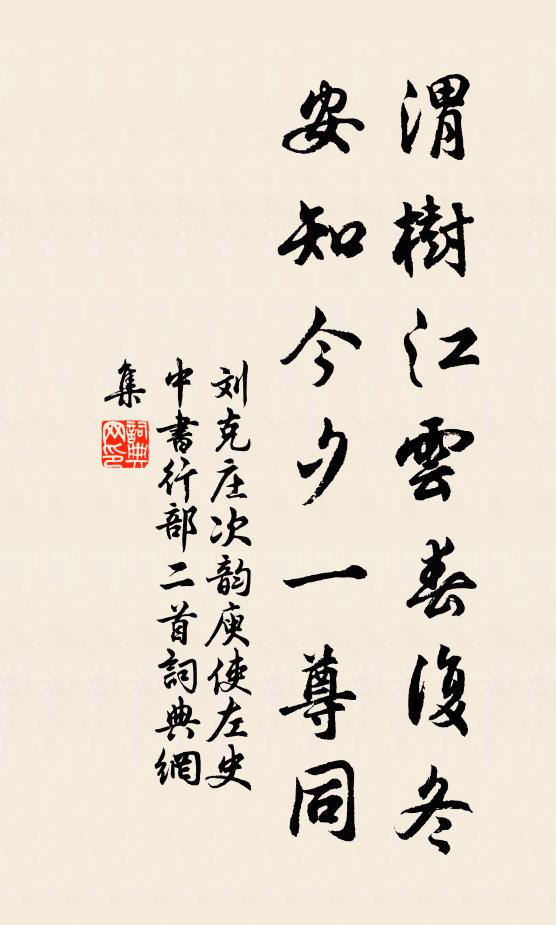 渭樹江雲春復冬
安知今夕一尊同
刘克庄次韵庾使左史
中書行部二首詞典網
集
詞典
网印